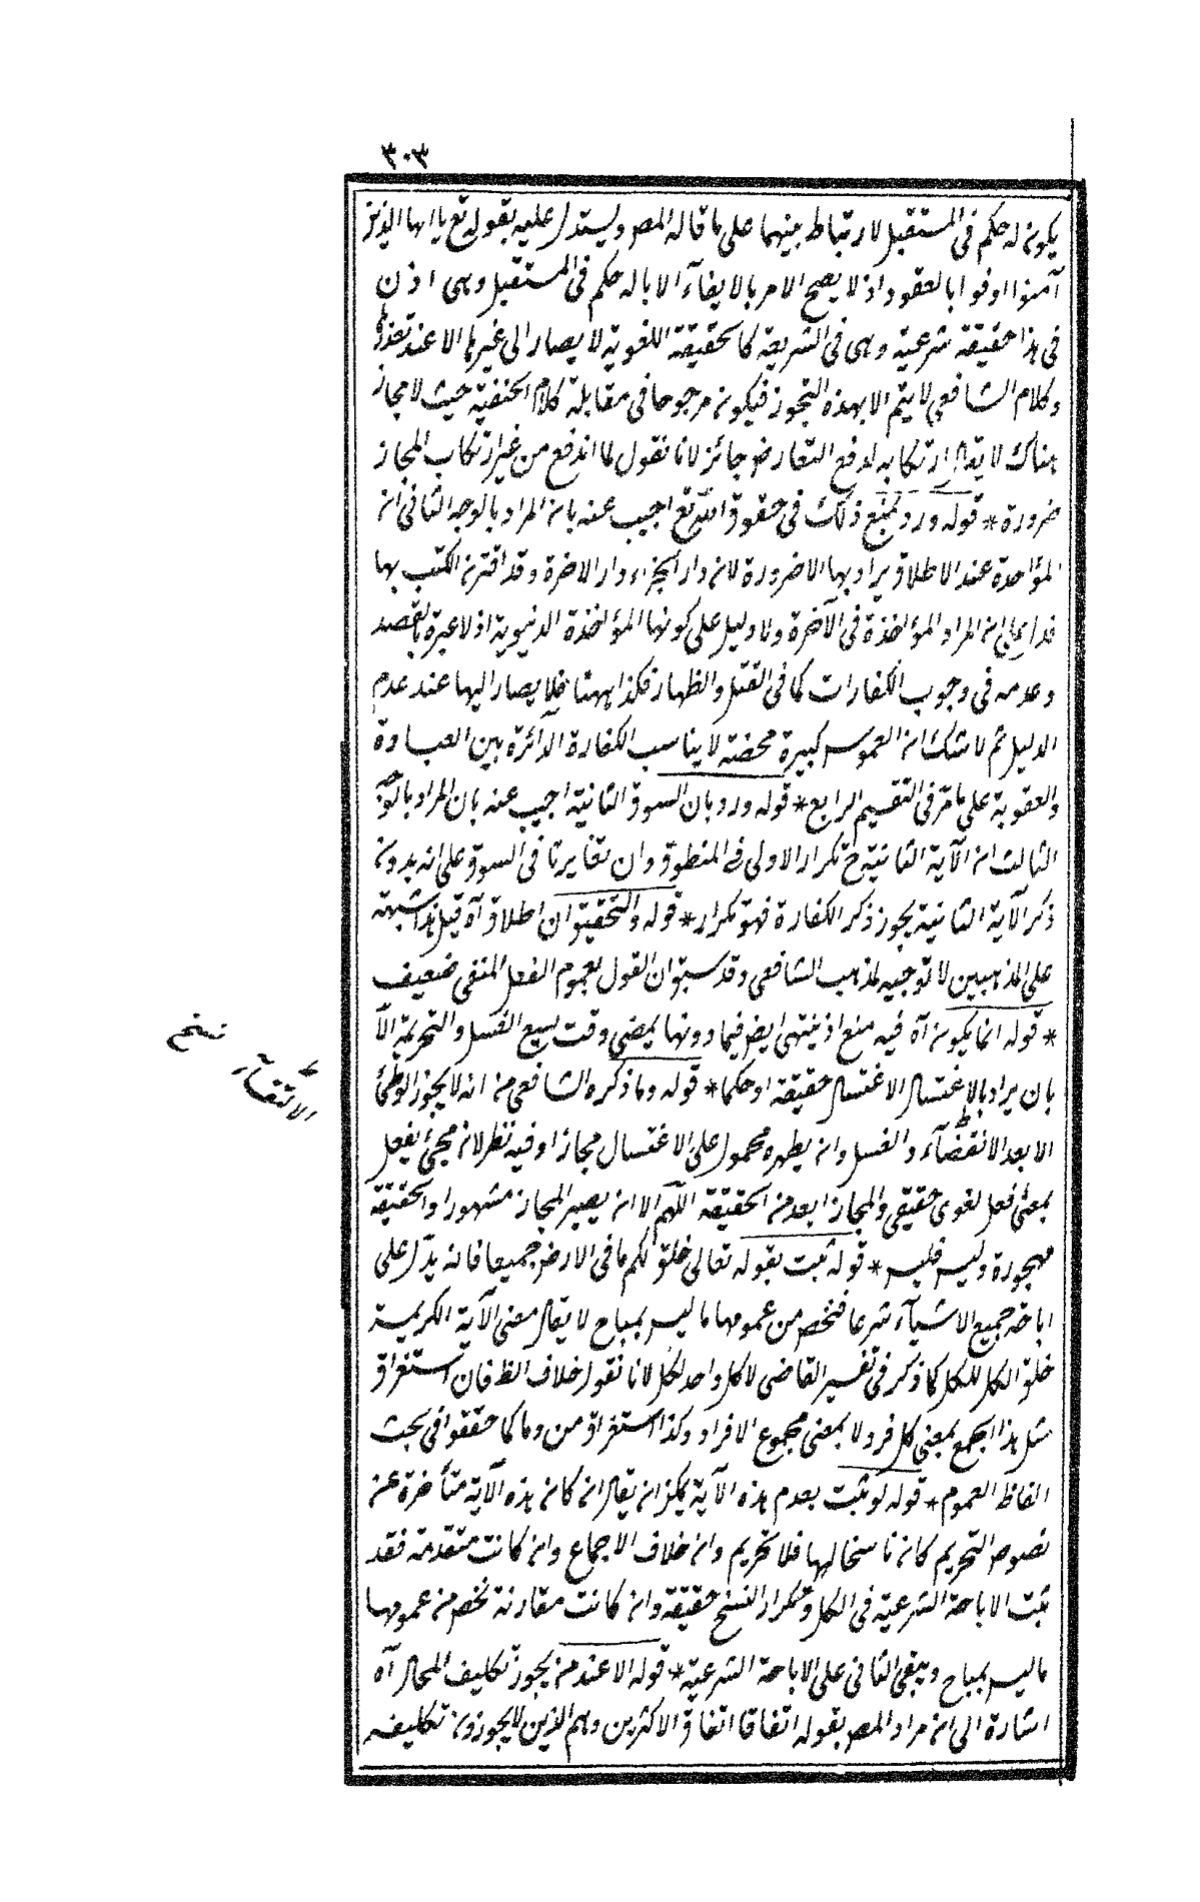 ٣٠٣
يكون له حكم فى المستقبل لارتباط بينهما على ما قاله المص ويستدل عليه بقوله تع يا ايها الذين
آمنوا اوفوا بالعقود اذ لا يصح الامر بالايفآء الا بما له حكم فى المستقبل وهى اذن
فى هذا حقيقة شرعية وهى فى الشريعة كالحقيقة اللغوية لا يصار الى غيرها الا عند تعذرها
وكلام الشافعى لا يتم الا بهذه التجوز فيكون مرجوحا فى مقابلة كلام الحنفية حيث لا مجاز
هناك لا يقال ارتكابه لدفع التعارض جائز لانا نقول لما اندفع من غير ارتكاب المجاز
ضرورة * قوله ورد بمنع ذلك فى حقوق الله تع اجيب عنه بان المراد بالوجه الثانى ان
المؤاخدة عند الاطلاق يراد بها الاضرورة لان دار الجزاء دار الاخرة وقد اقترن الكسب بها
فدل على ان المراد المؤاخذة فى الآخرة ولا دليل على كونها المؤاخذة الدنيوية اذ لا عبرة بالقصد
وعدمه فى وجوب الكفارات كما فى القتل والظهار فكذا ههنا فلا يصار اليها عند عدم
الدليل ثم لا شك ان الغموس كبيرة محضة لا يناسب الكفارة الدائرة بين العبادة
والعقوبة على ما مر فى التقسيم الرابع * قوله ورد بان السوق الثانية اجيب عنه بان المراد بالوجه
الثالث ان الآية الثانية ح تكرار الاولى فى المنطوق وان تغايرتا فى السوق على انه بدون
ذكر الآية الثانية يجوز ذكر الكفارة فهو تكرار * قوله والتحقيق ان اطلاق آه قيل هذا شبهة
على المذهبين لا توجيه لمذهب الشافعى وقد سبق ان القول بعموم الفعل المنفى ضعيف
* قوله انما يكون آه فيه منع اذ ينتهى ايض فيما دونها بمضى وقت يسع الغسل والتحريمة الا
بان يراد بالاغتسال الاغتسال حقيقة او حكما * قوله وما ذكره الشافعى من انه لا يجوز الوطئ
الا بعد الانقضآء والغسل وان يطهره محمول على الاغتسال مجازا وفيه نظر لان مجئ يفعل
بمعنى فعل لغوى حقيقى والمجاز ابعد من الحقيقة اللهم الا ان يصير المجاز مشهورا والحقيقة
مهجورة وليس فليس * قوله ثبت بقوله تعالى خلق لكم ما فى الارض جميعا فانه يدل على
اباحة جميع الاشيآء شرعا فخص من عمومها ما ليس بمباح لا يقال معنى الآية الكريمة
خلق الكل للكل كما ذكر فى تفسير القاضى لا كل واحد لكل لانا نقول خلاف الظ فان استغراق
مثل هذا الجمع بمعنى كل فرد لا بمعنى مجموع الافراد وكذا استغراق من وما كما حققوا فى بحث
الفاظ العموم * قوله لو ثبت بعدم هذه الآية يمكن ان يقال ان كان هذه الآية متأخرة عن
نصوص التحريم كان ناسخا لها فلا تحريم وانه خلاف الاجماع وان كانت متقدمة فقد
ثبت الاباحة الشرعية فى الكل وتكرار النسخ حقيقة وان كانت مقارنة تخص من عمومها
ما ليس بمباح ويبقى الثانى على الاباحة الشرعية * قوله الا عند من يجوز تكليف المحال آه
اشارة الى ان مراد المص بقوله اتفاقا اتفاق الاكثرين وهم الذين لا يجوزون تكليف
الانقآء نسخ